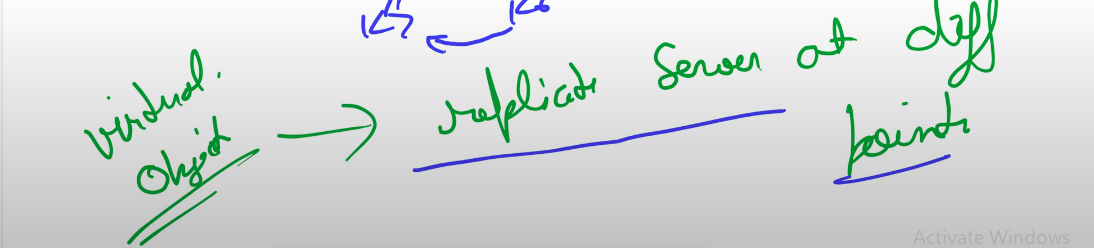 K7 K6
virtual. object → replicate Server at diff points
Activate Windows